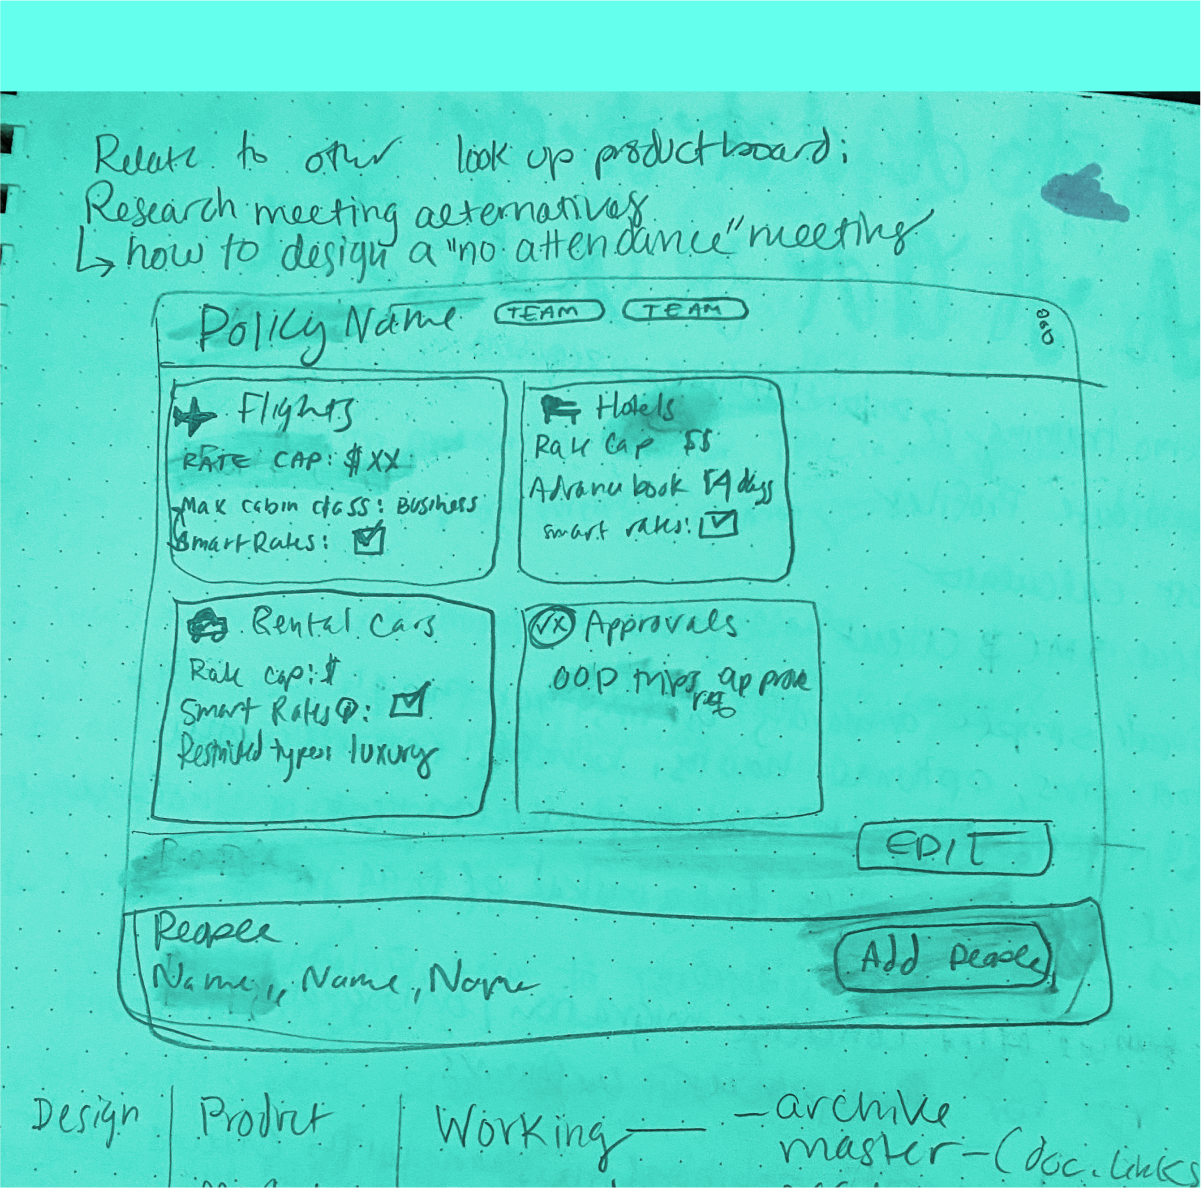 Relate to other look up productboard:
Research meeting alternatives
↳ how to design a "no attendance" meeting
Policy Name TEAM TEAM
Flights
RATE CAP: $XX
Max cabin class: Business
Smart Rates: ☑
Hotels
Rate Cap $$
Advance book 14 days
smart rates: ☑
Rental Cars
Rate cap: $
Smart Rates ⓘ: ☑
Restricted types: luxury
✓x Approvals
OOP trips req approve
EDIT
People
Name, Name, Name
Add people
Design | Product | Working — - archive
master - (doc. links